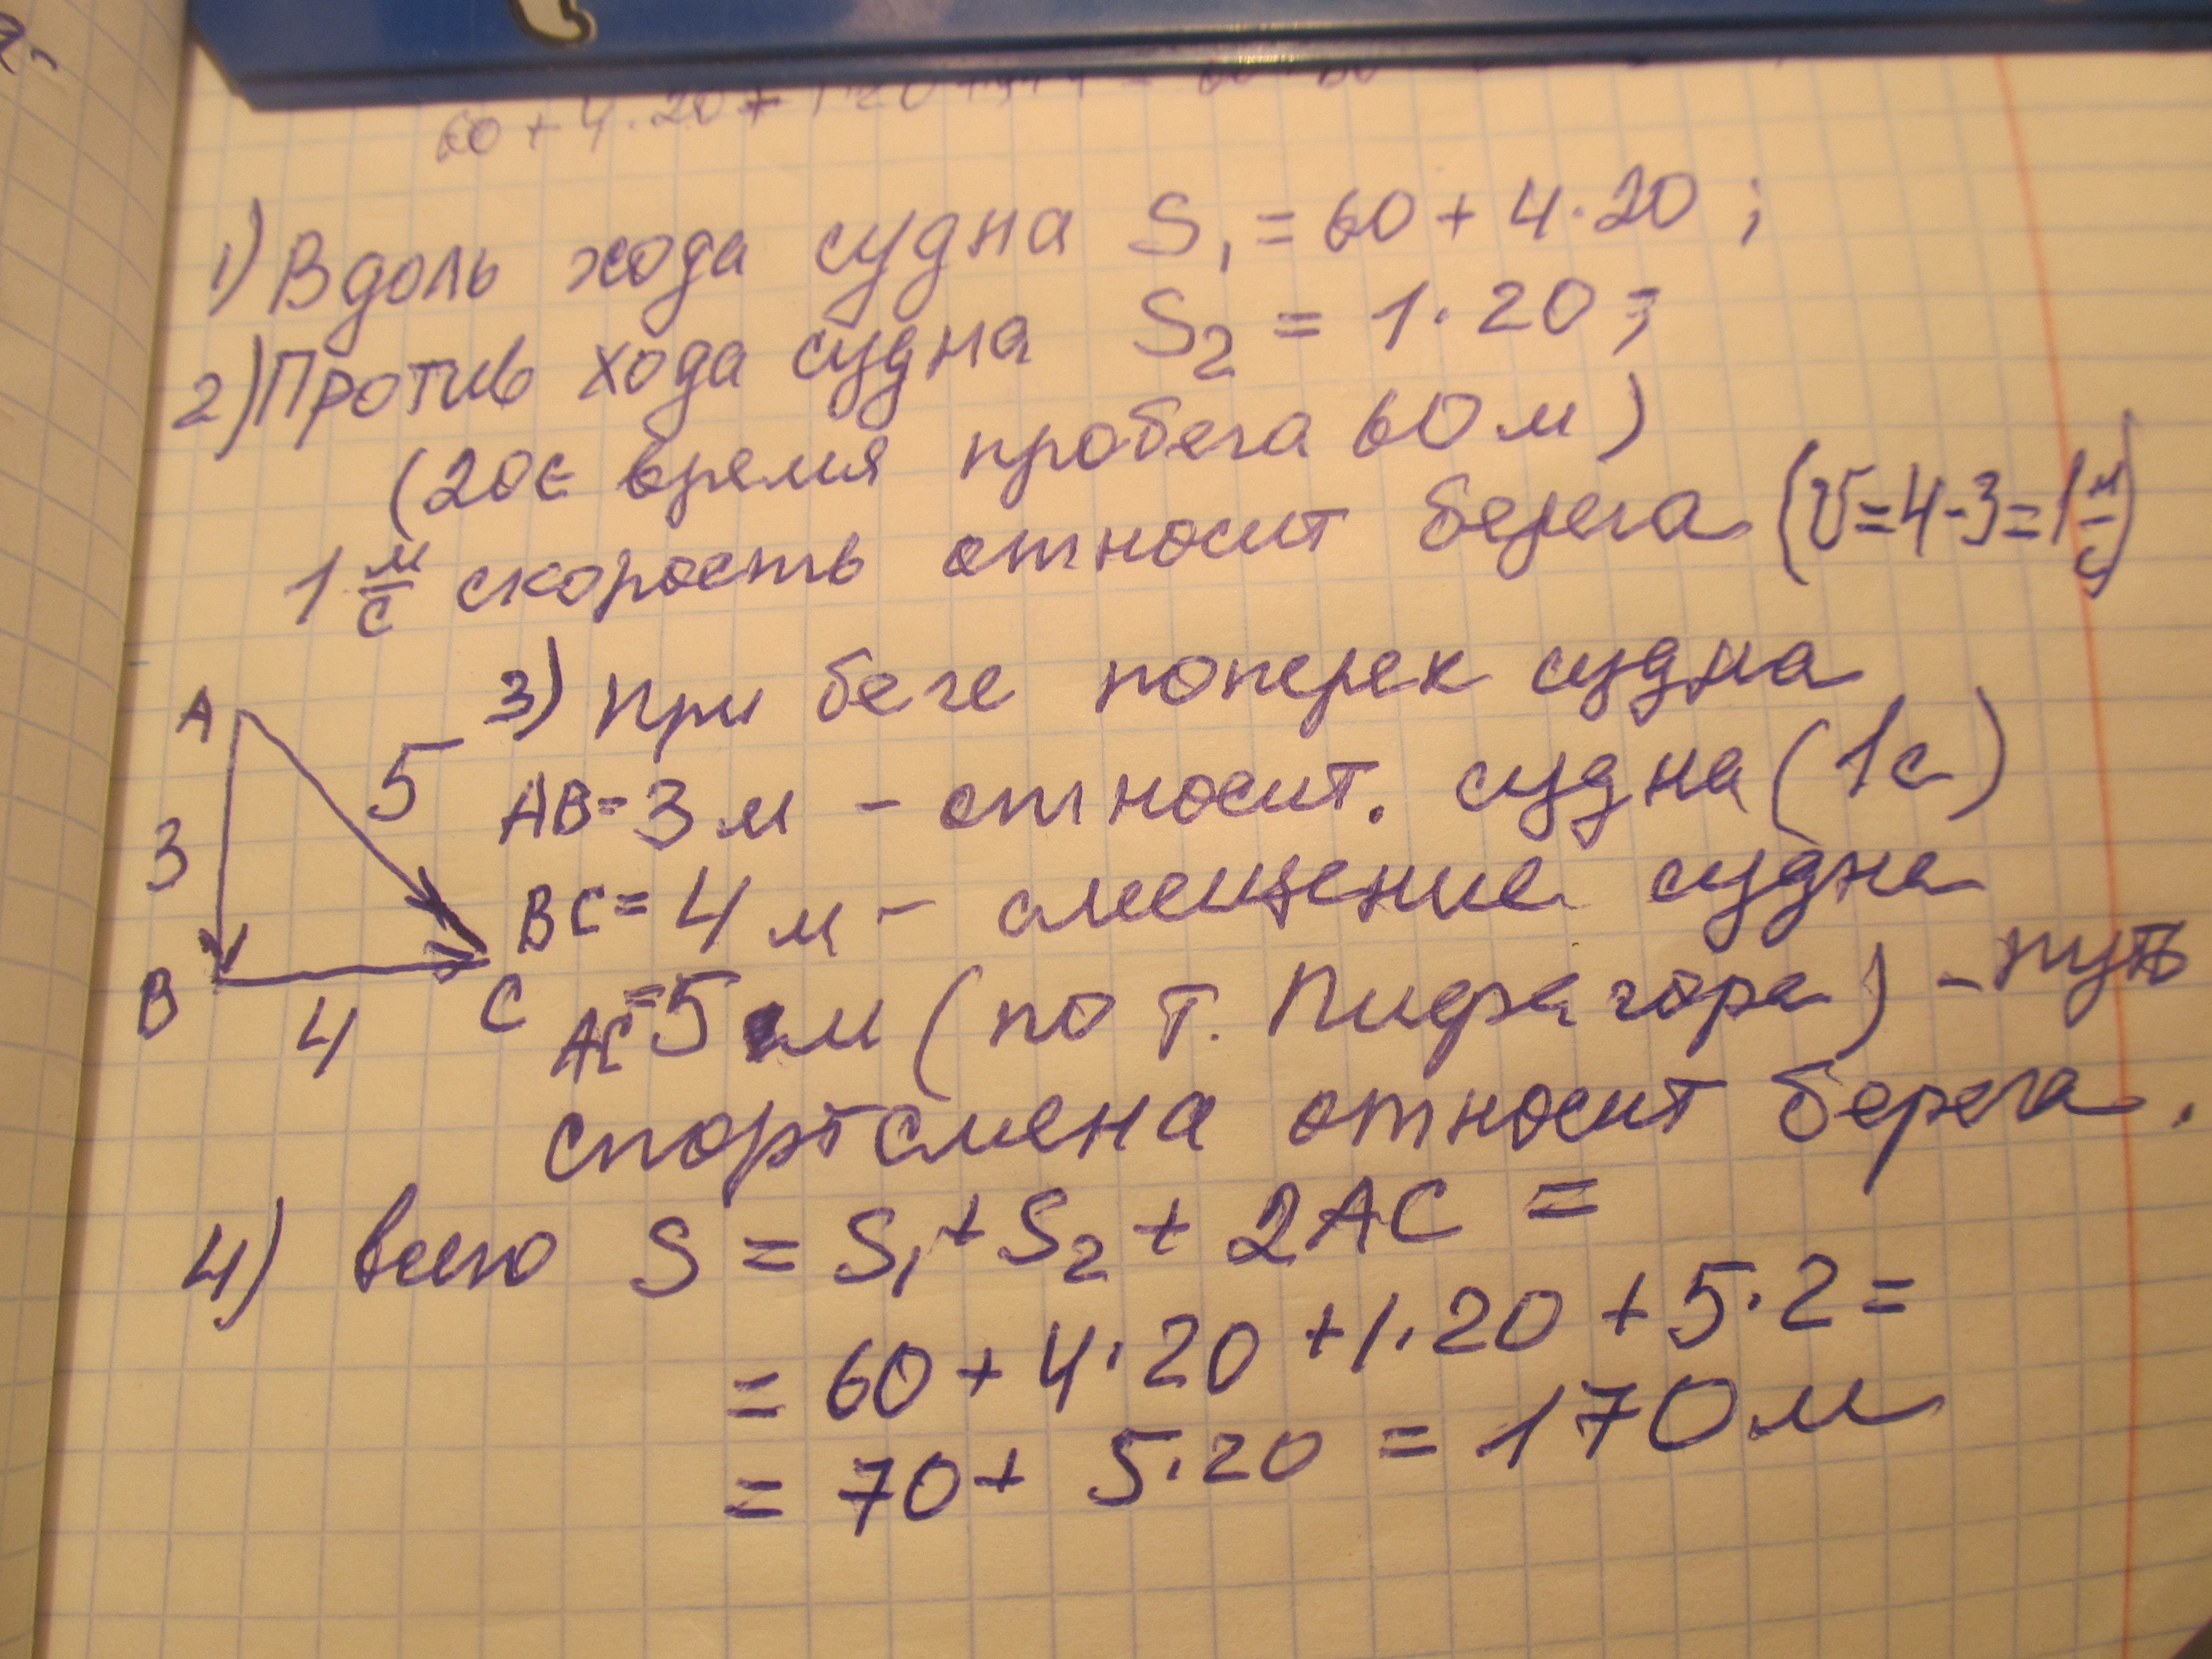 60 + 4·20 +
1) Вдоль хода судна S₁ = 60 + 4·20 ;
2) Против хода судна S₂ = 1·20 ;
(20с время пробега 60 м)
1 м/с скорость относит берега (v = 4-3 = 1 м/с)
3) при беге поперек судна
AB = 3 м - относит. судна (1с)
BC = 4 м - смещение судна
AC = 5 м (по т. Пифагора) - путь
спортсмена относит берега.
A
5
3
B
4
C
4) всего S = S₁ + S₂ + 2AC =
= 60 + 4·20 + 1·20 + 5·2 =
= 70 + 5·20 = 170 м